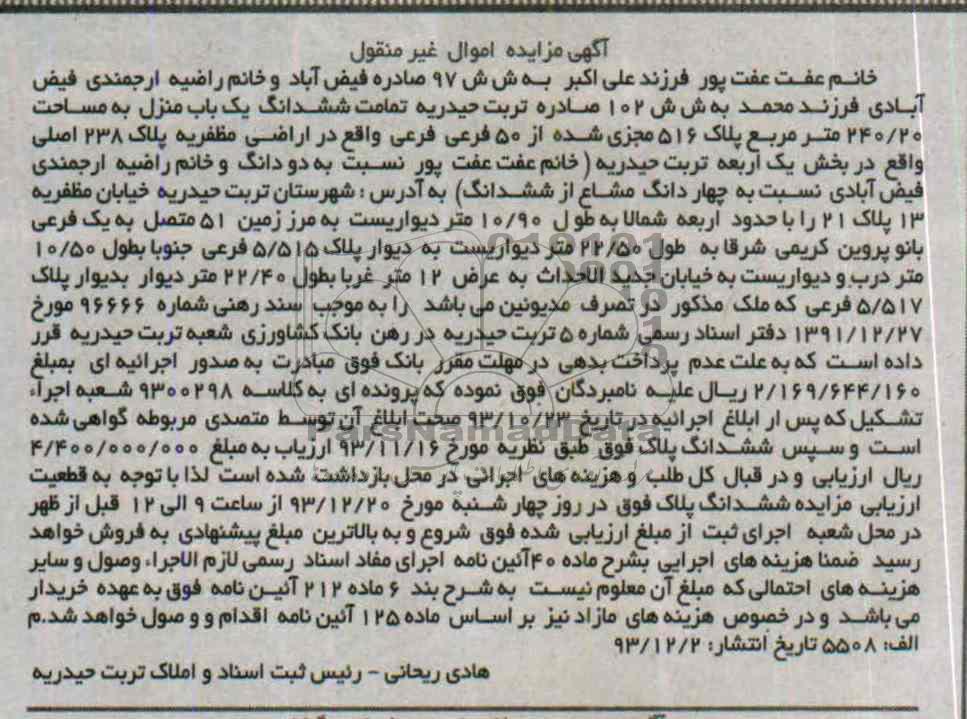 آگهی مزایده اموال غیر منقول
خانم عفت عفت پور فرزند علی اکبر به ش ش ۹۷ صادره فیض آباد و خانم راضیه ارجمندی فیض
آبادی فرزند محمد به ش ش ۱۰۲ صادره تربت حیدریه تمامت ششدانگ یک باب منزل به مساحت
۲۴۰/۲۰ متر مربع پلاک ۵۱۶ مجزی شده از ۵۰ فرعی فرعی واقع در اراضی مظفریه پلاک ۲۳۸ اصلی
واقع در بخش یک اربعه تربت حیدریه (خانم عفت عفت پور نسبت به دو دانگ و خانم راضیه ارجمندی
فیض آبادی نسبت به چهار دانگ مشاع از ششدانگ) به آدرس : شهرستان تربت حیدریه خیابان مظفریه
۱۳ پلاک ۲۱ را با حدود اربعه شمالا به طول ۱۰/۹۰ متر دیواریست به مرز زمین ۵۱ متصل به یک فرعی
بانو پروین کریمی شرقا به طول ۲۲/۵۰ متر دیواریست به دیوار پلاک ۵/۵۱۵ فرعی جنوبا بطول ۱۰/۵۰
متر درب و دیواریست به خیابان جدید الاحداث به عرض ۱۲ متر غربا بطول ۲۲/۴۰ متر دیوار بدیوار پلاک
۵/۵۱۷ فرعی که ملک مذکور در تصرف مدیونین می باشد را به موجب سند رهنی شماره ۹۶۶۶۶ مورخ
۱۳۹۱/۱۲/۲۷ دفتر اسناد رسمی شماره ۵ تربت حیدریه در رهن بانک کشاورزی شعبه تربت حیدریه قرر
داده است که به علت عدم پرداخت بدهی در مهلت مقرر بانک فوق مبادرت به صدور اجرائیه ای بمبلغ
۲/۱۶۹/۶۴۴/۱۶۰ ریال علیه نامبردگان فوق نموده که پرونده ای به کلاسه ۹۳۰۰۲۹۸ شعبه اجراء
تشکیل که پس ار ابلاغ اجرائیه در تاریخ ۹۳/۱۰/۲۳ صحت ابلاغ آن توسط متصدی مربوطه گواهی شده
است و سپس ششدانگ پلاک فوق طبق نظریه مورخ ۹۳/۱۱/۱۶ ارزیاب به مبلغ ۴/۴۰۰/۰۰۰/۰۰۰
ریال ارزیابی و در قبال کل طلب و هزینه های اجرائی در محل بازداشت شده است لذا با توجه به قطعیت
ارزیابی مزایده ششدانگ پلاک فوق در روز چهار شنبه مورخ ۹۳/۱۲/۲۰ از ساعت ۹ الی ۱۲ قبل از ظهر
در محل شعبه اجرای ثبت از مبلغ ارزیابی شده فوق شروع و به بالاترین مبلغ پیشنهادی به فروش خواهد
رسید ضمنا هزینه های اجرایی بشرح ماده ۴۰ آئین نامه اجرای مفاد اسناد رسمی لازم الاجراء وصول و سایر
هزینه های احتمالی که مبلغ آن معلوم نیست به شرح بند ۶ ماده ۲۱۲ آئین نامه فوق به عهده خریدار
می باشد و در خصوص هزینه های مازاد نیز بر اساس ماده ۱۲۵ آئین نامه اقدام و و صول خواهد شد.م
الف: ۵۵۰۸ تاریخ انتشار: ۹۳/۱۲/۲
هادی ریحانی - رئیس ثبت اسناد و املاک تربت حیدریه
ParsNamadData